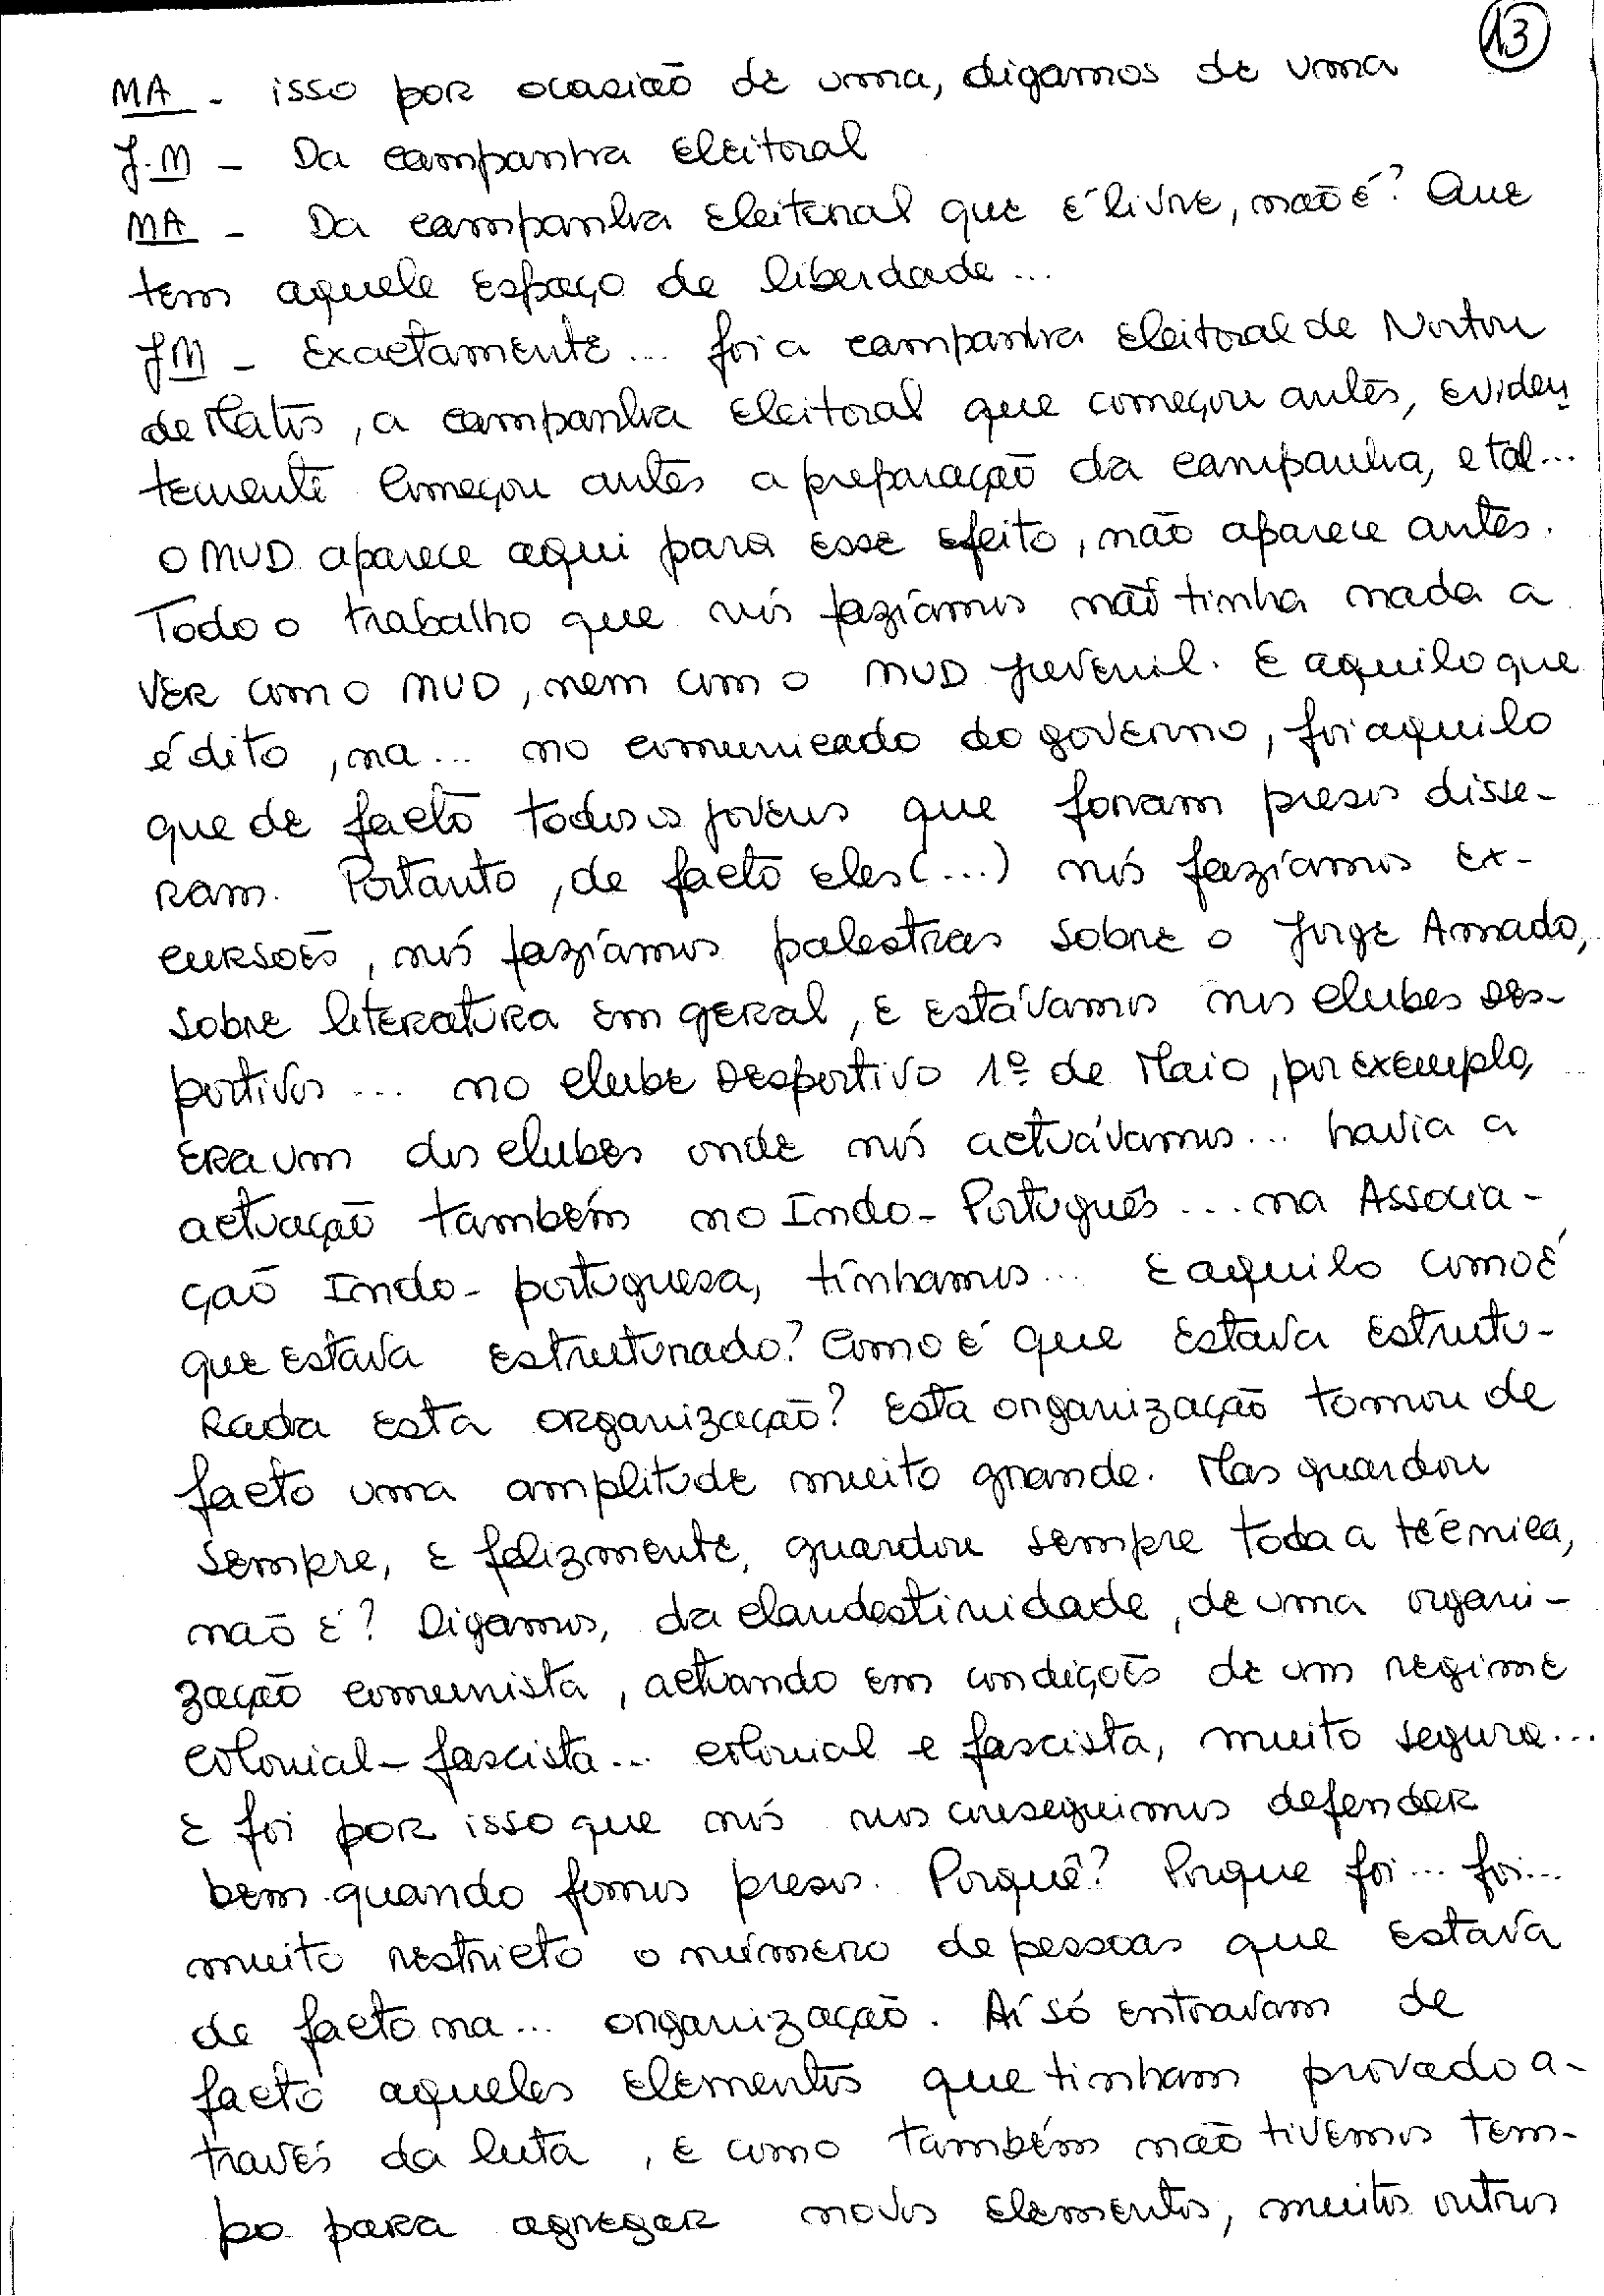 13
MA - isso por ocasião de uma, digamos de uma
J.M - Da campanha eleitoral
MA - Da campanha eleitoral que é livre, não é? Que
tem aquele espaço de liberdade...
JM - Exactamente... foi a campanha eleitoral de Norton
de Matos, a campanha eleitoral que começou antes, eviden
temente começou antes a preparação da campanha, e tal...
O MUD aparece aqui para esse efeito, não aparece antes.
Todo o trabalho que nós fazíamos não tinha nada a
ver com o MUD, nem com o MUD juvenil. E aquilo que
é dito, na... no comunicado do governo, foi aquilo
que de facto todos os jovens que foram presos disse-
ram. Portanto, de facto eles (...) nós fazíamos ex-
cursões, nós fazíamos palestras sobre o Jorge Amado,
sobre literatura em geral, e estávamos nos clubes des-
portivos... no clube desportivo 1º de Maio, por exemplo,
era um dos clubes onde nós actuávamos... havia a
actuação também no Indo-Português... na Associa-
ção Indo-portuguesa, tínhamos... E aquilo como é
que estava estruturado? Como é que estava estrutu-
rada esta organização? Esta organização tomou de
facto uma amplitude muito grande. Mas guardou
sempre, e felizmente, guardou sempre toda a técnica,
não é? Digamos, da clandestinidade, de uma organi-
zação comunista, actuando em condições de um regime
colonial-fascista... colonial e fascista, muito segura...
e foi por isso que nós nos conseguimos defender
bem quando fomos presos. Porquê? Porque foi... foi...
muito restricto o número de pessoas que estava
de facto na... organização. Aí só entravam de
facto aqueles elementos que tinham provado a-
través da luta, e como também não tivemos tem-
po para agregar novos elementos, muitos outros